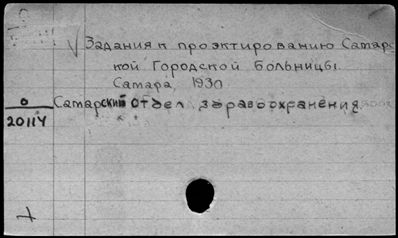 Задания к проэктированию Самарс
кой Городской Больницы.
Самара, 1930
О Самарский отдел здравоохранения
20114